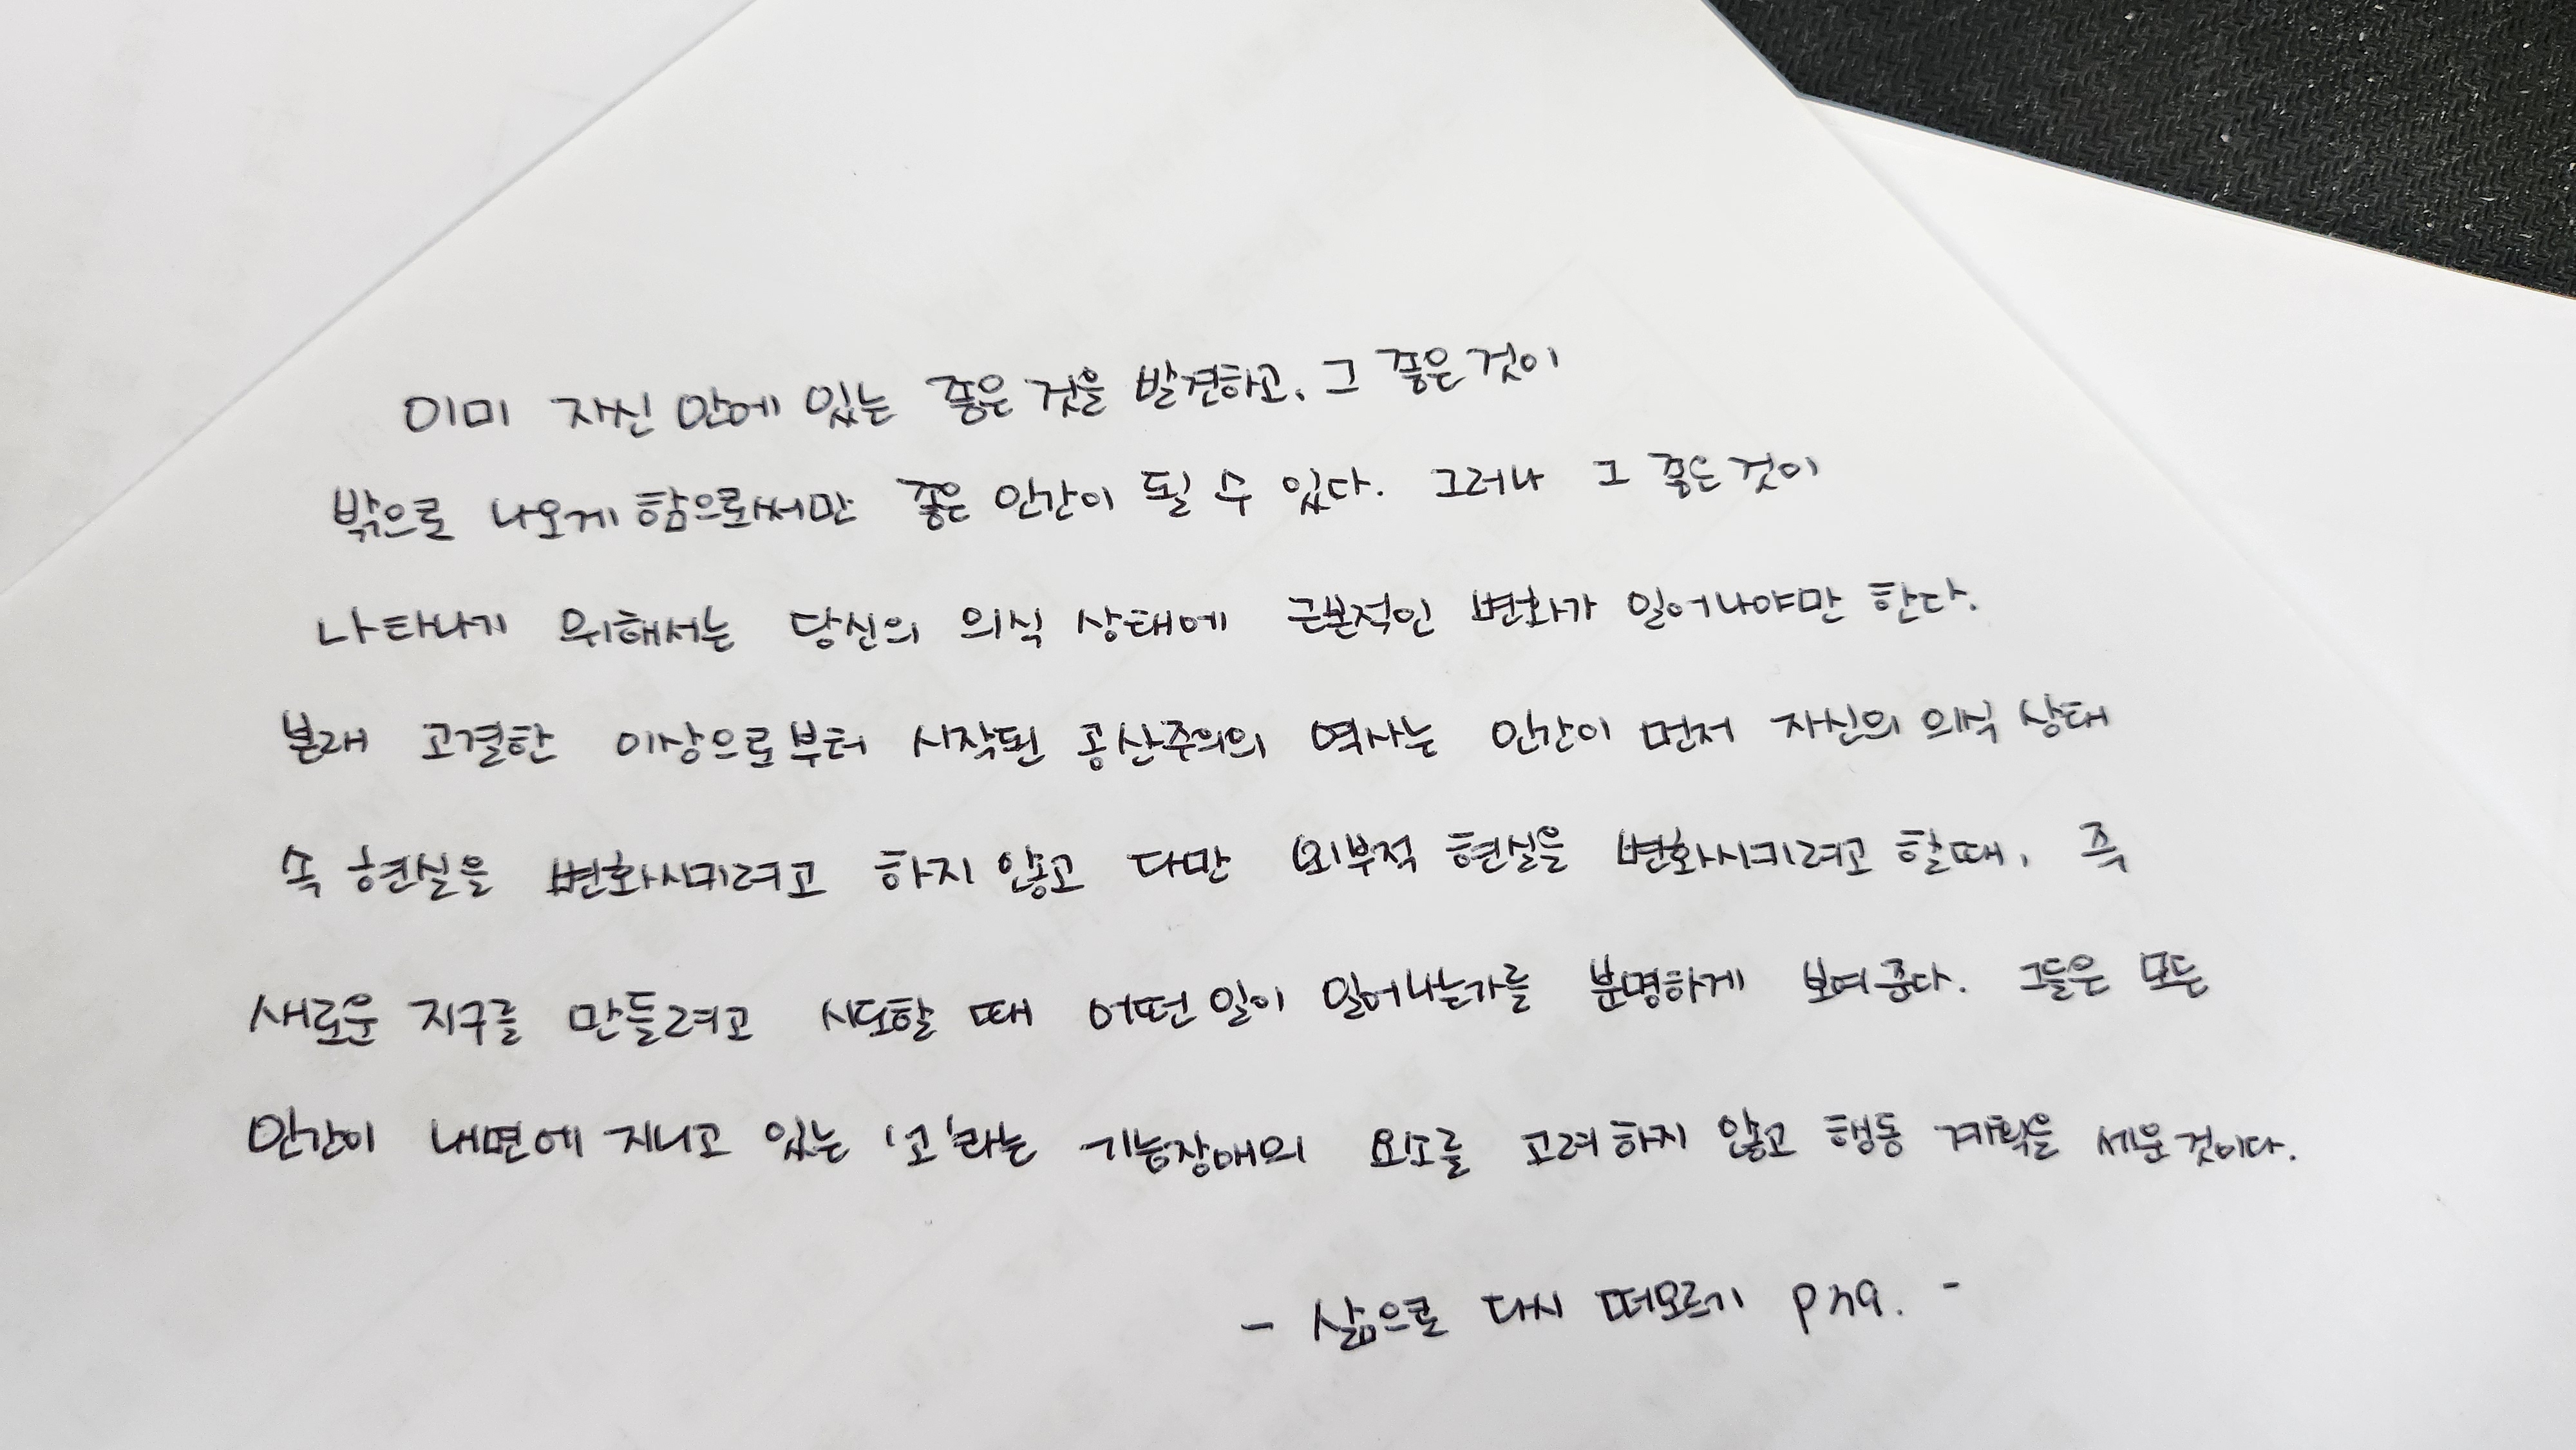 이미 자신 안에 있는 좋은 것을 발견하고, 그 좋은 것이
밖으로 나오게 함으로써만 좋은 인간이 될 수 있다. 그러나 그 좋은 것이
나타나기 위해서는 당신의 의식 상태에 근본적인 변화가 일어나야만 한다.
본래 고결한 이상으로부터 시작된 공산주의의 역사는 인간이 먼저 자신의 의식 상태
속 현실을 변화시키려고 하지 않고 다만 외부적 현실을 변화시키려고 할때, 즉
새로운 지구를 만들려고 시도할 때 어떤 일이 일어나는가를 분명하게 보여준다. 그들은 모든
인간이 내면에 지니고 있는 '고'라는 기능장애의 요소를 고려하지 않고 행동 계획을 세운 것이다.
- 삶으로 다시 떠오르기 -